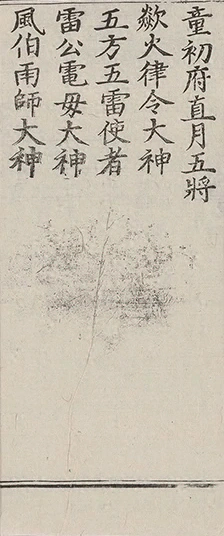 童初府直月五將
歘火律令大神
五方五雷使者
雷公電毋大神
風伯雨師大神